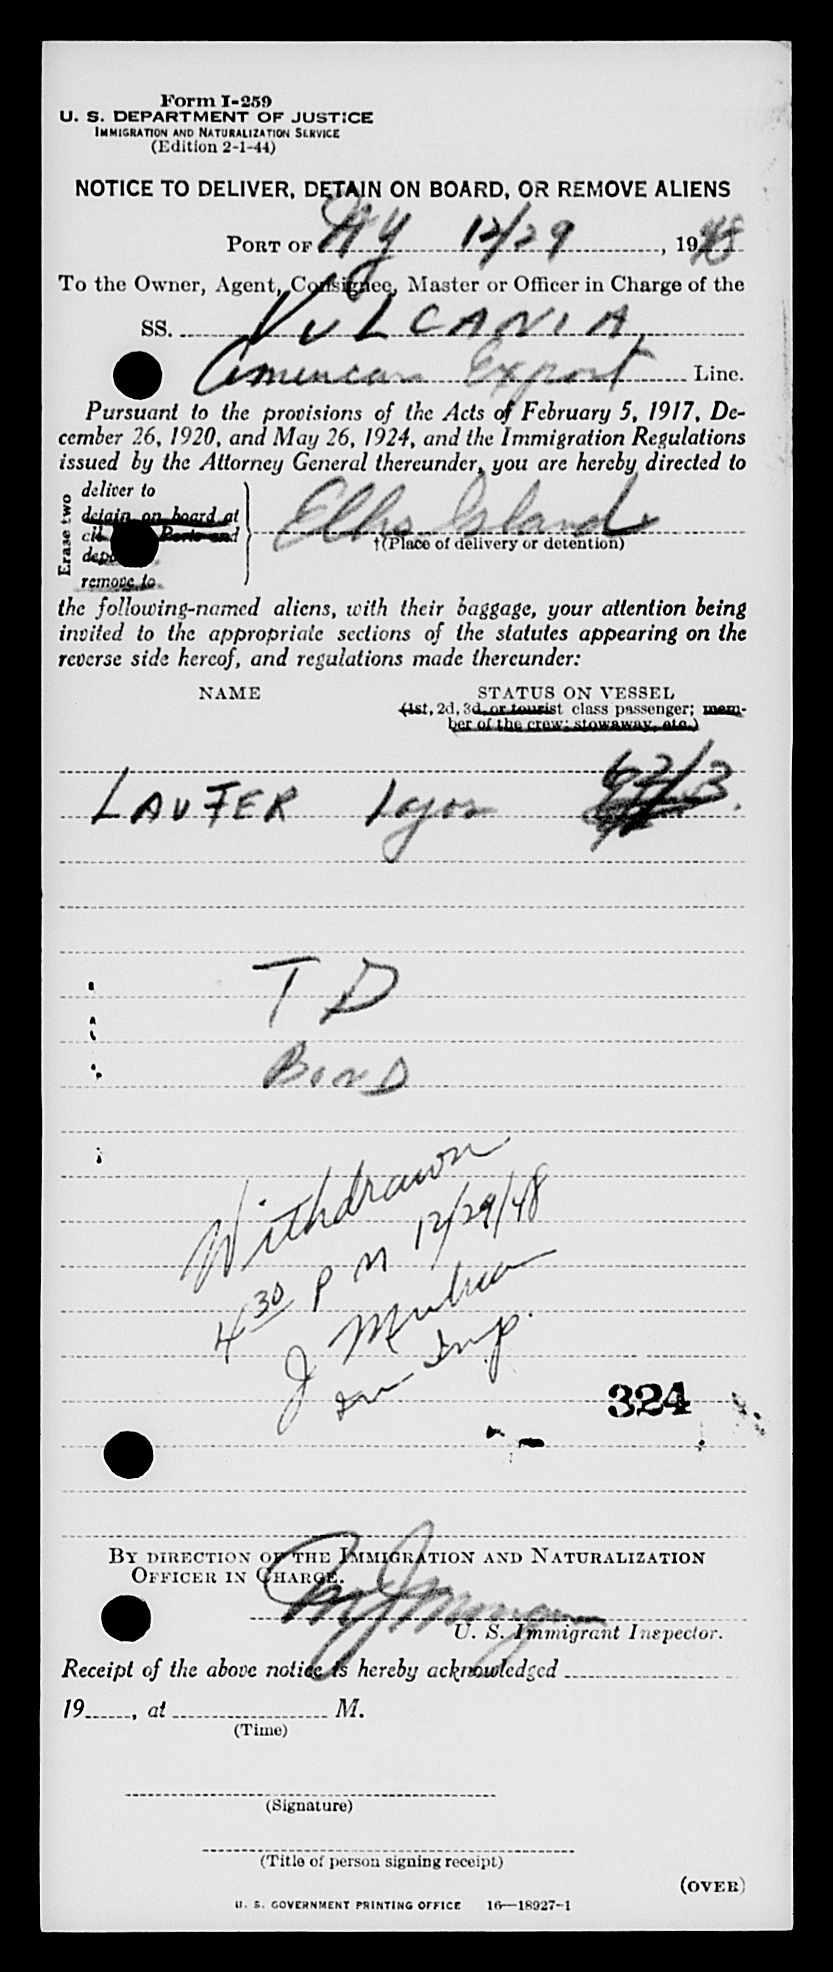 Form I-259
U. S. DEPARTMENT OF JUSTICE
IMMIGRATION AND NATURALIZATION SERVICE
(Edition 2-1-44)
NOTICE TO DELIVER, DETAIN ON BOARD, OR REMOVE ALIENS
PORT OF NY 12/29, 1948
To the Owner, Agent, Consignee, Master or Officer in Charge of the
SS. VULCANIA
American Export Line.
Pursuant to the provisions of the Acts of February 5, 1917, De-
cember 26, 1920, and May 26, 1924, and the Immigration Regulations
issued by the Attorney General thereunder, you are hereby directed to
Erase two
deliver to
detain on board at
Ports and
remove to
Ellis Island
†(Place of delivery or detention)
the following-named aliens, with their baggage, your attention being
invited to the appropriate sections of the statutes appearing on the
reverse side hereof, and regulations made thereunder:
NAME STATUS ON VESSEL
(1st, 2d, 3d, or tourist class passenger; mem-
ber of the crew; stowaway, etc.)
LAUFER
T D
BOND
Withdrawn
4 30 P M 12/29/48
J
Insp.
324
BY DIRECTION OF THE IMMIGRATION AND NATURALIZATION
OFFICER IN CHARGE.
U. S. Immigrant Inspector.
Receipt of the above notice is hereby acknowledged
19, at M.
(Time)
(Signature)
(Title of person signing receipt)
(OVER)
U. S. GOVERNMENT PRINTING OFFICE 16—18927-1